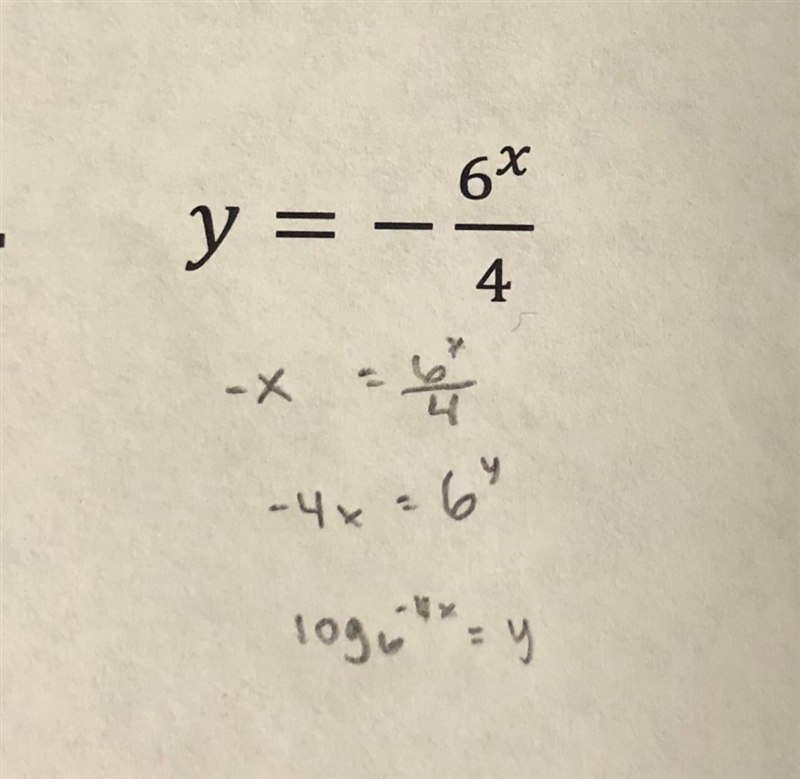 y = − 6^x / 4
-x = 6^x / 4
-4x = 6^y
log_6^-4x = y